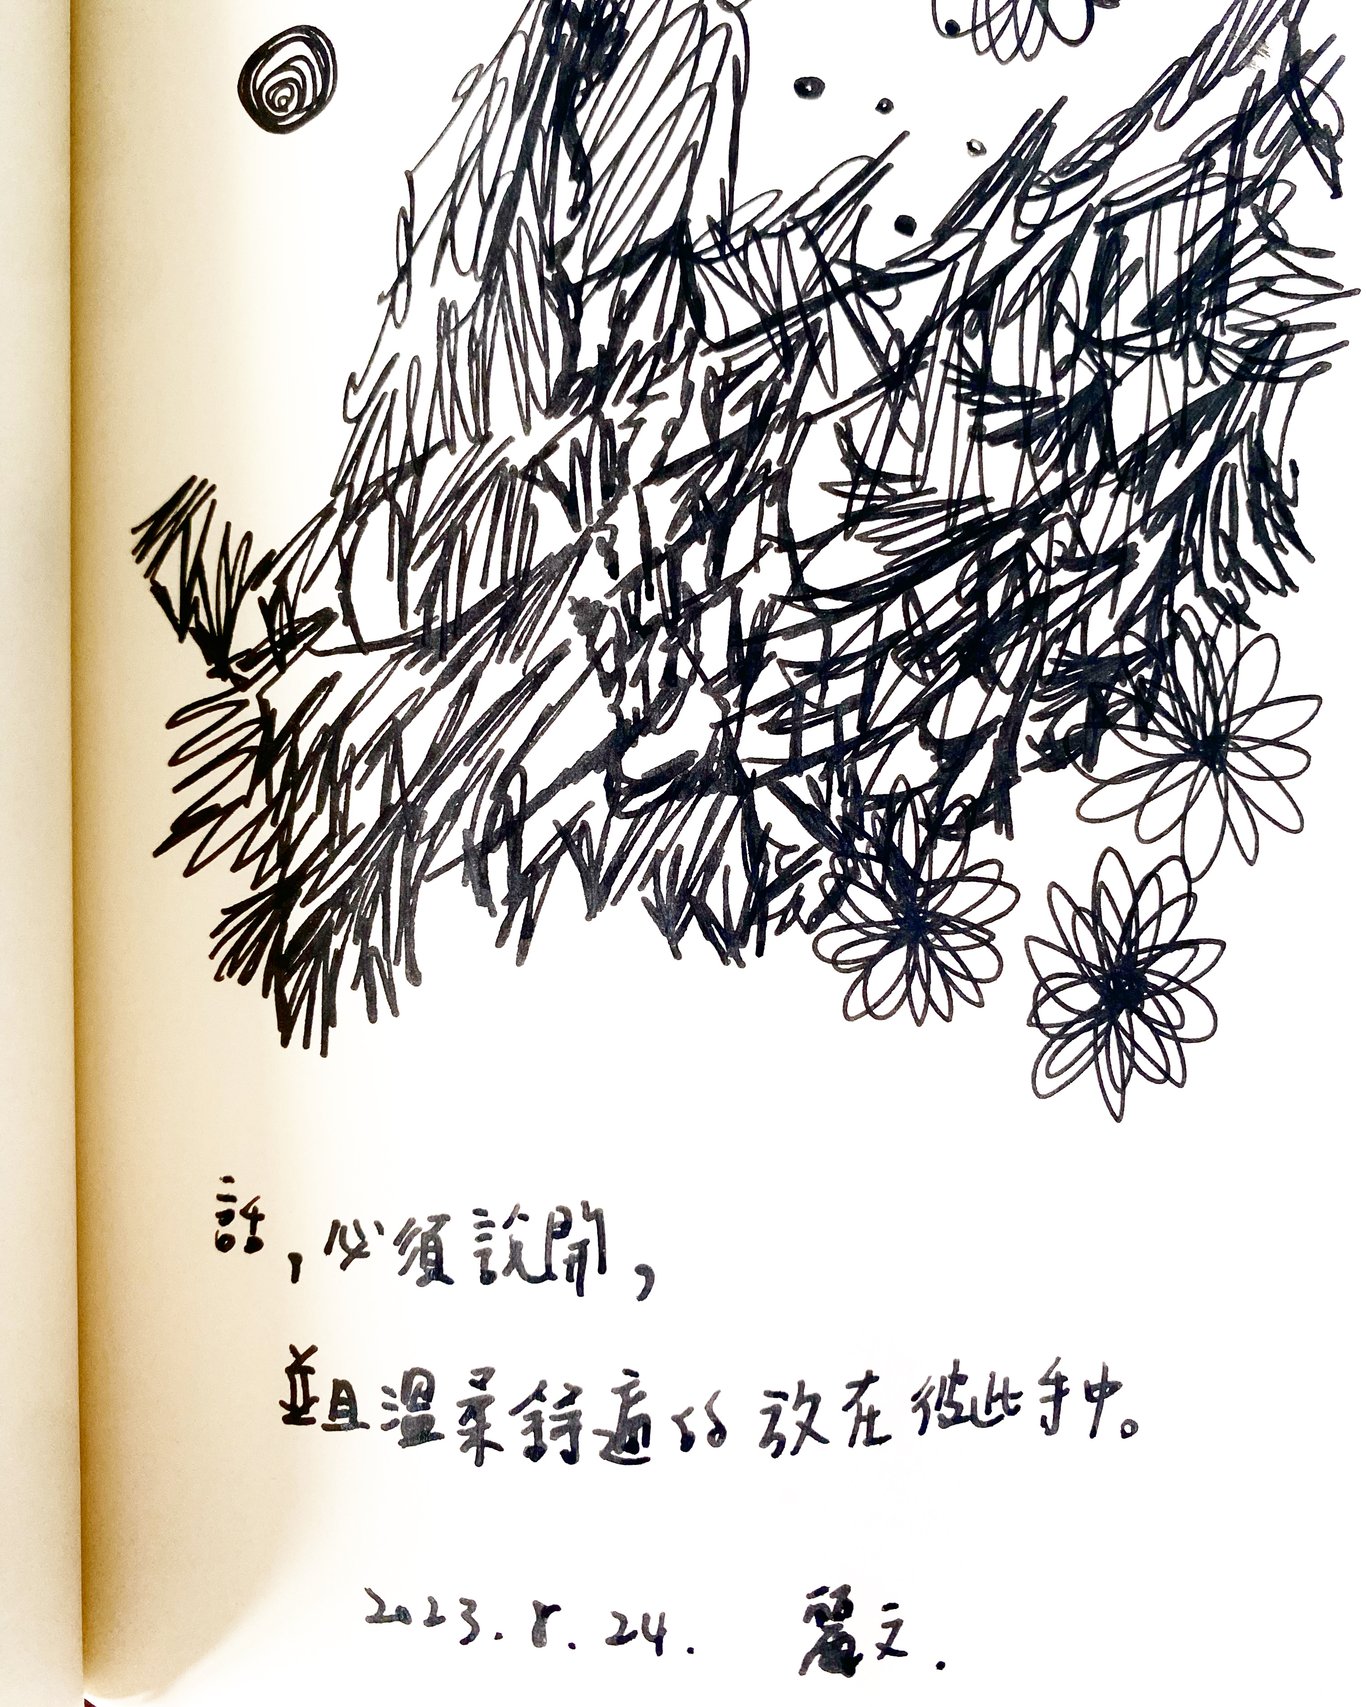 話,必須說開,
並且溫柔舒適的放在彼此手中。
2023.8.24. 麗文.